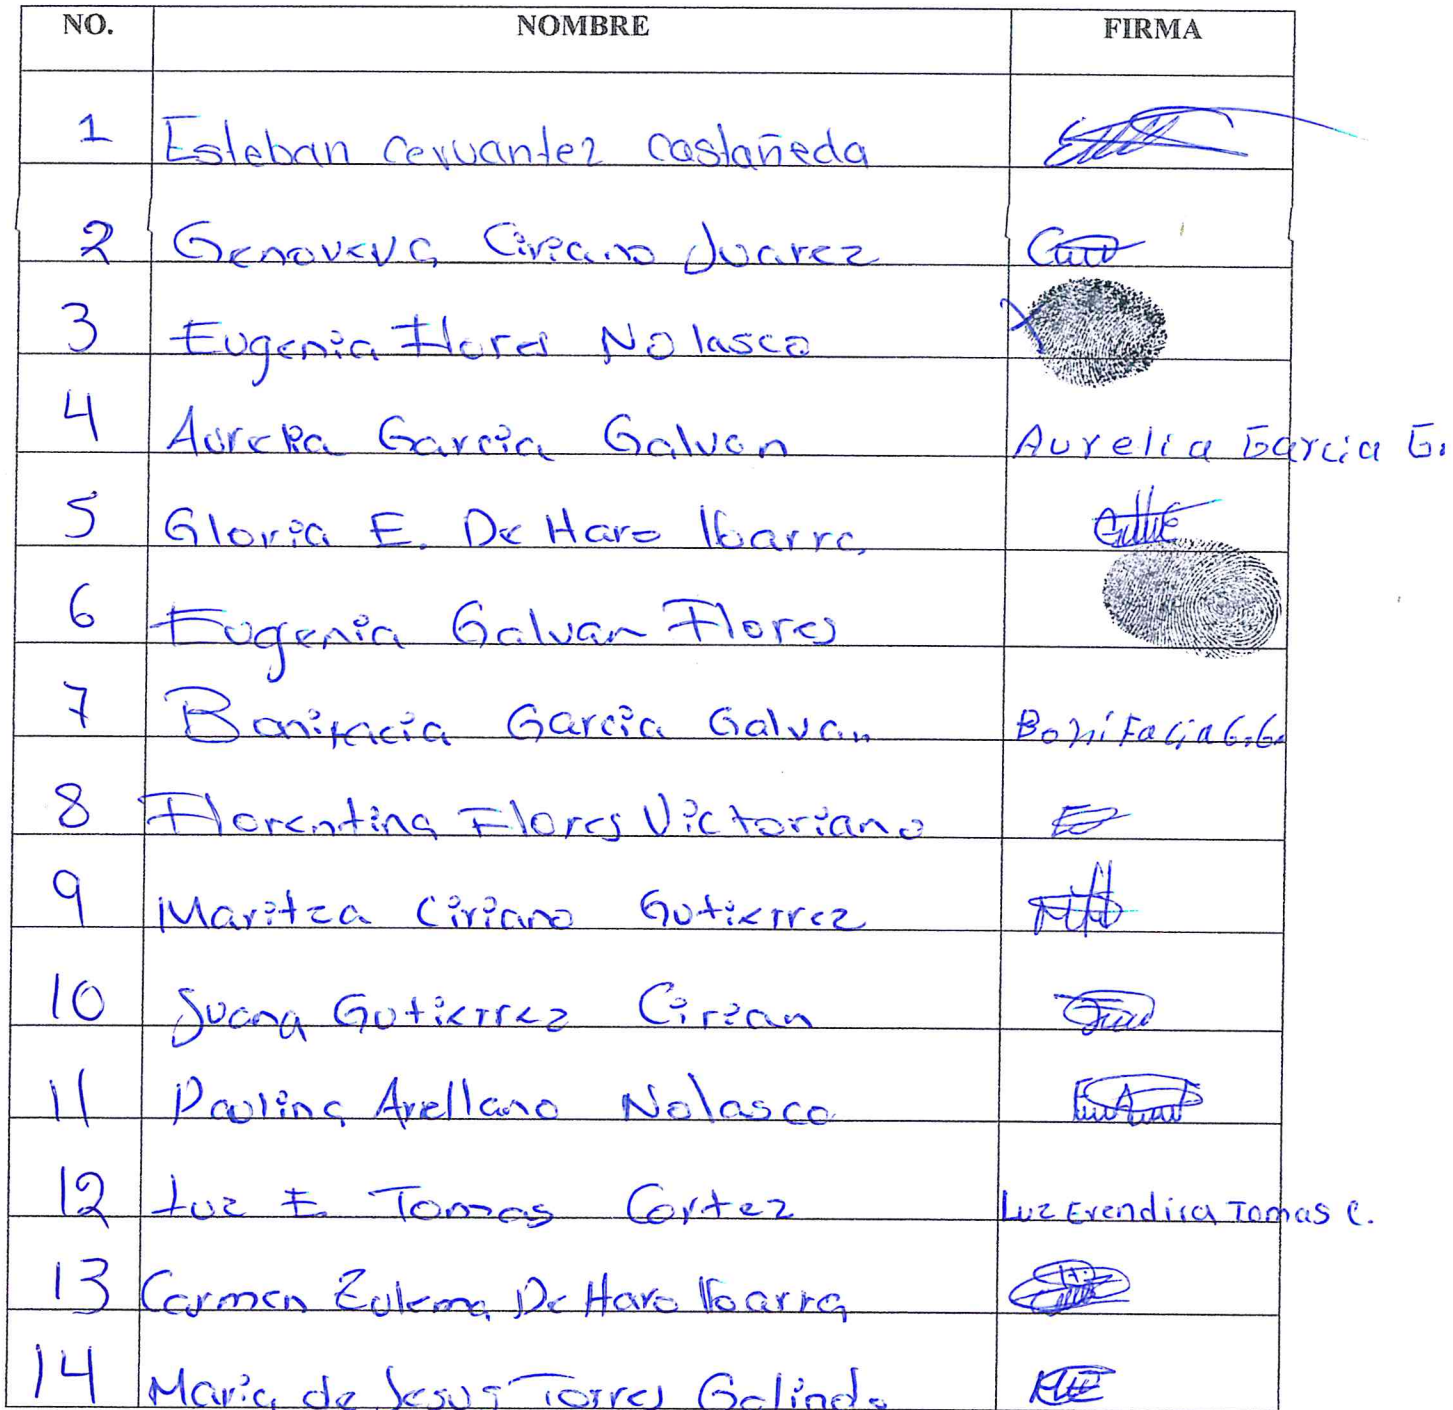 NO. NOMBRE FIRMA
1 Esteban Cervantez Castañeda
2 Genoveva Ciriano Juarez
3 Eugenia Flores Nolasco
4 Aurelia Garcia Galvan Aurelia Garcia G.
5 Gloria E. De Haro Ibarra
6 Eugenia Galvan Flores
7 Bonifacia Garcia Galvan Bonifacia G.G.
8 Florentina Flores Victoriano
9 Maritza Ciriano Gutierrez
10 Juana Gutierrez Cirian
11 Paulina Arellano Nolasco
12 Luz E. Tomas Cortez Luz Erendira Tomas C.
13 Carmen Zulema De Haro Ibarra
14 Maria de Jesus Torres Galindo